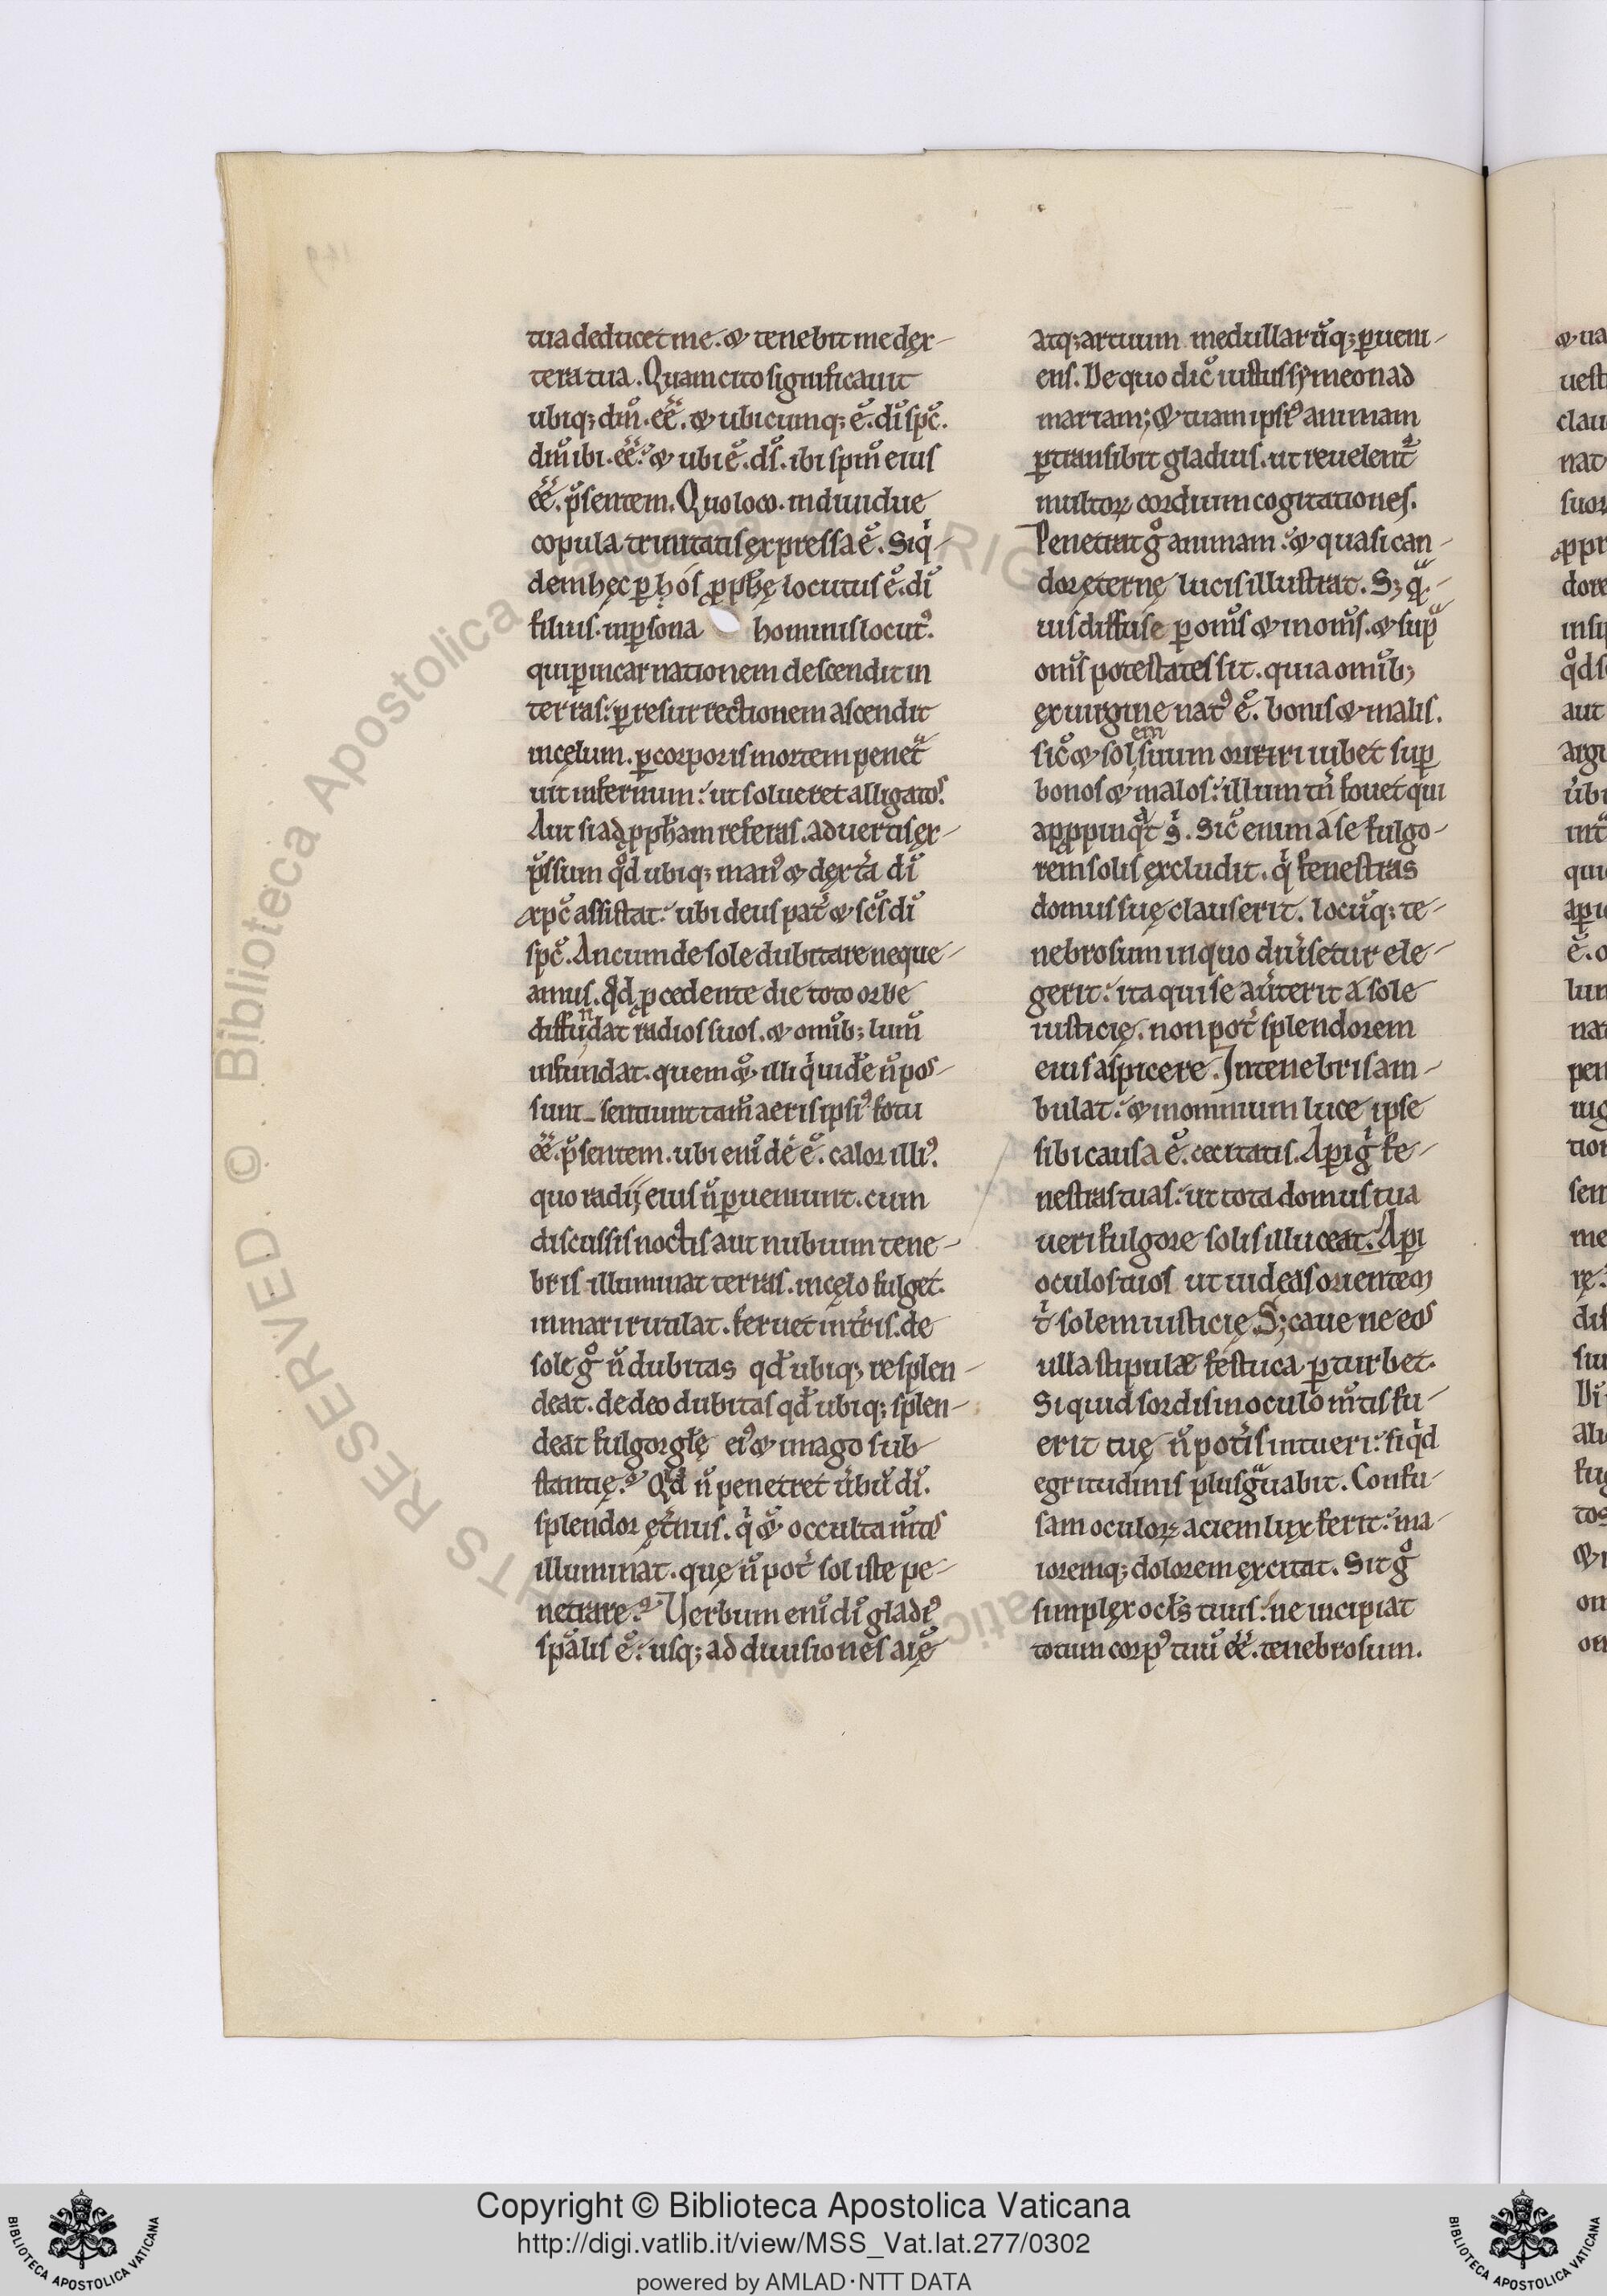 tua deducet me. & tenebit me dex-
tera tua. Quam cito significauit
ubiq; dm̄. eē. & ubicumq; ē. di sp̄c.
dm̄ ibi. eē. & ubi ē. ds̄. ibi spm̄ eius
eē. p̄sentem. Quo loco. indiuidue
copula trinitatis expressa ē. Siqͥ-
dem hęc p̲ hos p̲ph̄ę locutus ē. di
filius. in p̲sona hominis locut᾿.
qui p̲ incarnationem descendit in
terras. p̲ resurrectionem ascendit
in cęlum. p̲ corporis mortem penet̄
uit infernum. ut solueret alligatos.
Aut si ad p̲ph̄am referas. aduertis ex-
p̄ssum qd̄ ubiq; man᾿ & dext̄a di
xp̄c assistat. ubi deus pat̄ & sc̄s di
sp̄c. An cum de sole dubitare neque-
amus. qd̄ p̲cedente die toto orbe
diffundat radios suos. & omīb; lum̄
infundat. quem & illi qͥ uidē n̄ pos-
sunt sentiunt tam̄ aeris ipsi᾿ fotu
eē. p̄sentem. ubi enī dē ē. calor illi᾿.
quo radij eius n̄ p̲ueniunt. cum
discussis noctis aut nubium tene-
bris illuminat terras. in cęlo fulget.
in mari rutilat. feruet in t̄ris. de
sole g̊ n̄ dubitas qd̄ ubiq; resplen-
deat. de deo dubitas qd̄ ubiq; splen-
deat fulgor glę ei᾿ & imago sub
stantię. Qd̄ n̄ penetret ūbū di.
splendor et̄nus. qͥ & occulta m̄tis
illuminat. que n̄ pot̄ sol iste pe-
netrare. Verbum enī di gladi᾿
sp̄alis ē. usq; ad diuisiones aię
atq; artuum medullarūq; p̲ueni-
ens. De quo dic̄ iustus symeon ad
mariam; & tuam ipsi᾿ animam
p̲transibit gladius. ut reuelent᾿
multoꝝ cordium cogitationes.
Penetrat g̊ animam. & quasi can-
dor ęterne lucis illustrat. S; qᷓ-
uis diffuse p̲ om̄s & in om̄s. & sup̄
om̄s potestates sit. quia omīb;
ex uirgine nat᾿ ē. bonis & malis.
em
sic̄ & sol suum oriri iubet sup̲
bonos & malos. illum tn̄ fouet qui
app̲pinqᷓt sͥ. Sic̄ enim a se fulgo-
rem solis excludit. qͥ fenestras
domus sue clauserit. locūq; te-
nebrosum in quo diūsetur ele-
gerit. ita qui se aūterit a sole
iusticię. non pot̄ splendorem
eius aspicere. In tenebris am-
bulat. & in omnium luce ipse
sibi causa ē. cecitatis. Ap̲i g̊ fe-
nestras tuas. ut tota domus tua
ueri fulgore solis illuceat. Ap̲i
oculos tuos ut uideas orientem
tͥ solem iusticię. S; caue ne eos
ulla stipulæ festuca p̲turbet.
Si quid sordis in oculo m̄tis fu-
erit tue n̄ pot̄is intueri. siqͥd
egritudinis plus gᷓuabit. Confu-
sam oculoꝝ aciem lux ferit. ma-
ioremq; dolorem excitat. Sit g̊
simplex ocl̄s tuus. ne incipiat
totum corp᾿ tuū eē. tenebrosum.
Copyright © Biblioteca Apostolica Vaticana
http://digi.vatlib.it/view/MSS_Vat.lat.277/0302
powered by AMLAD·NTT DATA